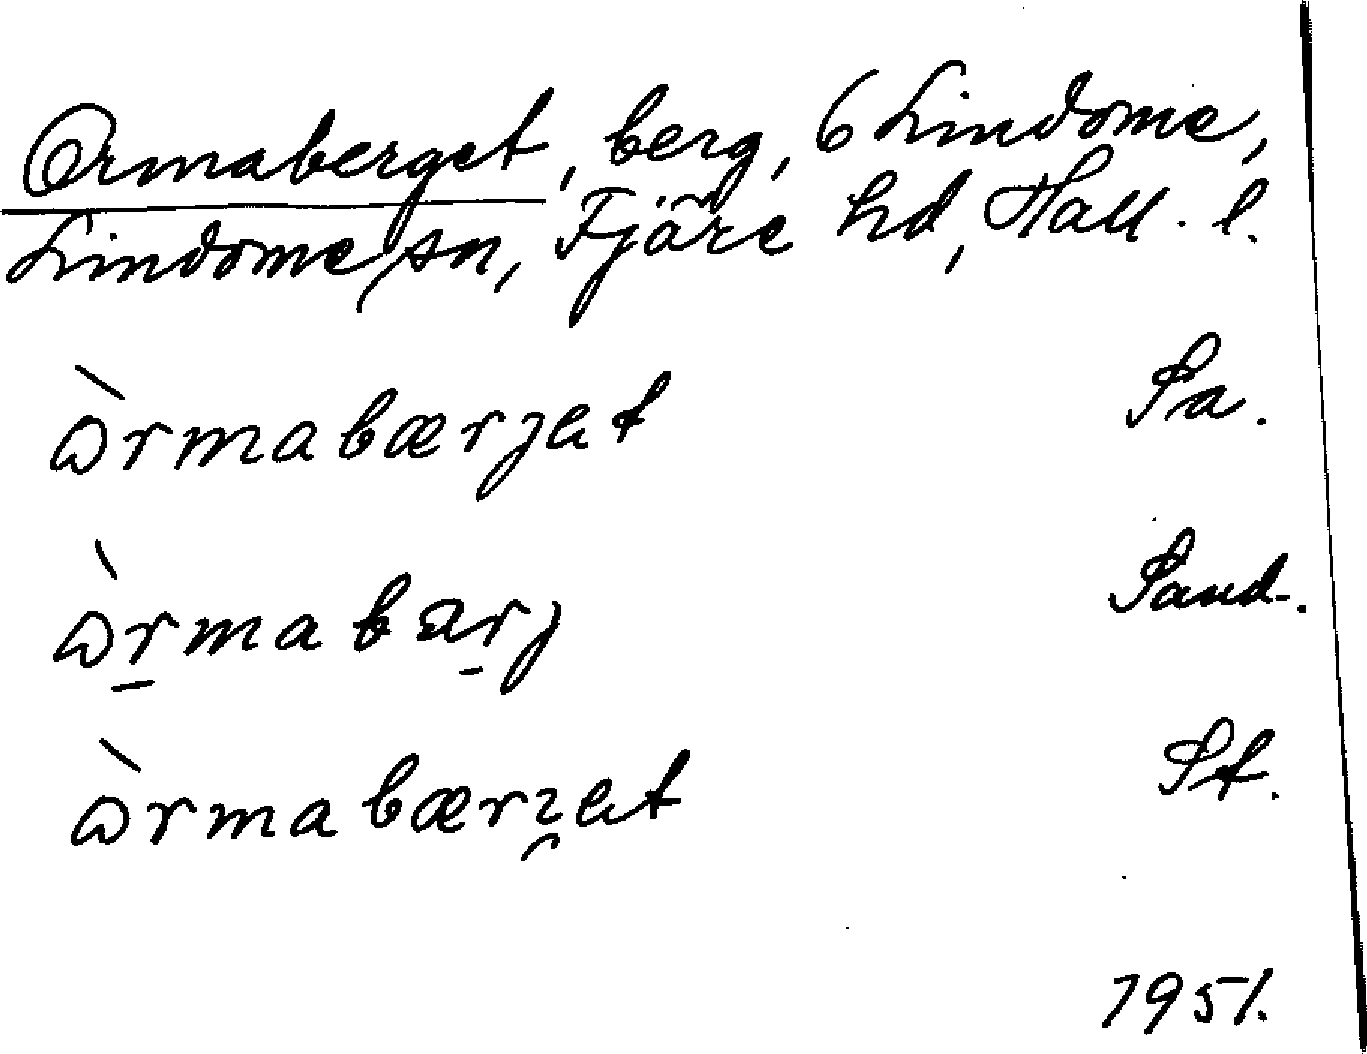 Ormaberget, berg, 6 Lindome,
Lindome sn, Fjäre hd, Hall. l.
ɷ̀rmabærjat Sa.
ɷ̀r̠mabar̠j Sand.
ɷ̀rmabærjat St.
1951.